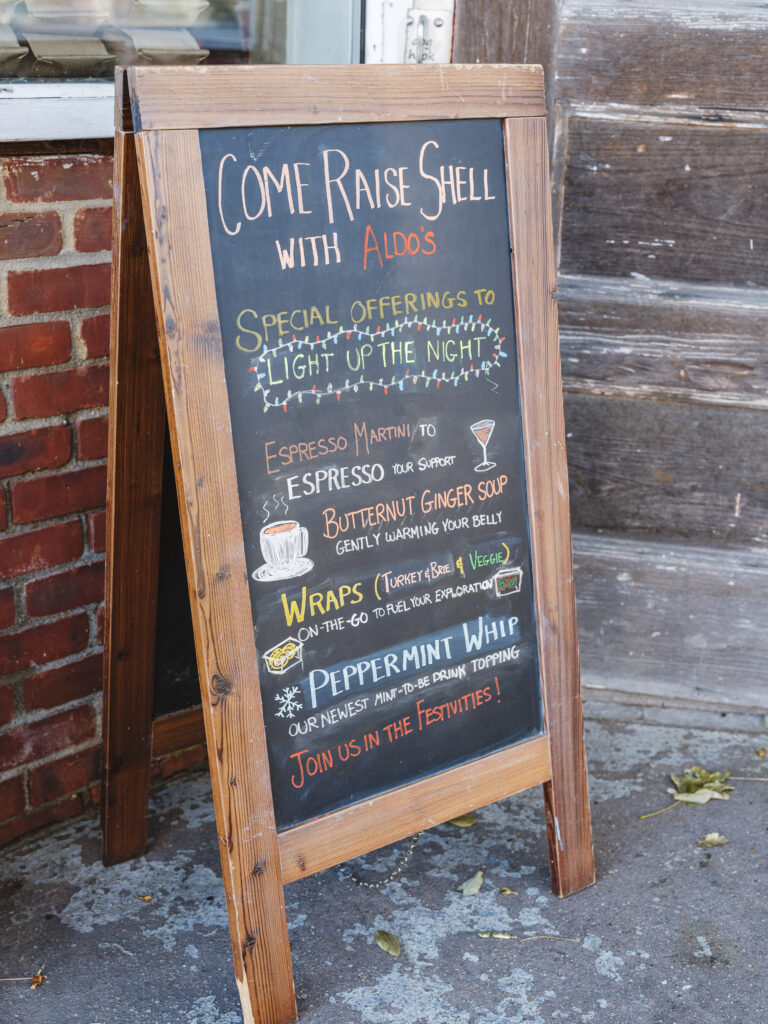 Come Raise Shell
with Aldo's
Special offerings to
Light up the Night
Espresso Martini to
Espresso your support
Butternut Ginger soup
gently warming your belly
Wraps (Turkey & Brie & Veggie)
on-the-go to fuel your exploration
Peppermint Whip
our newest mint-to-be drink topping
Join us in the Festivities!